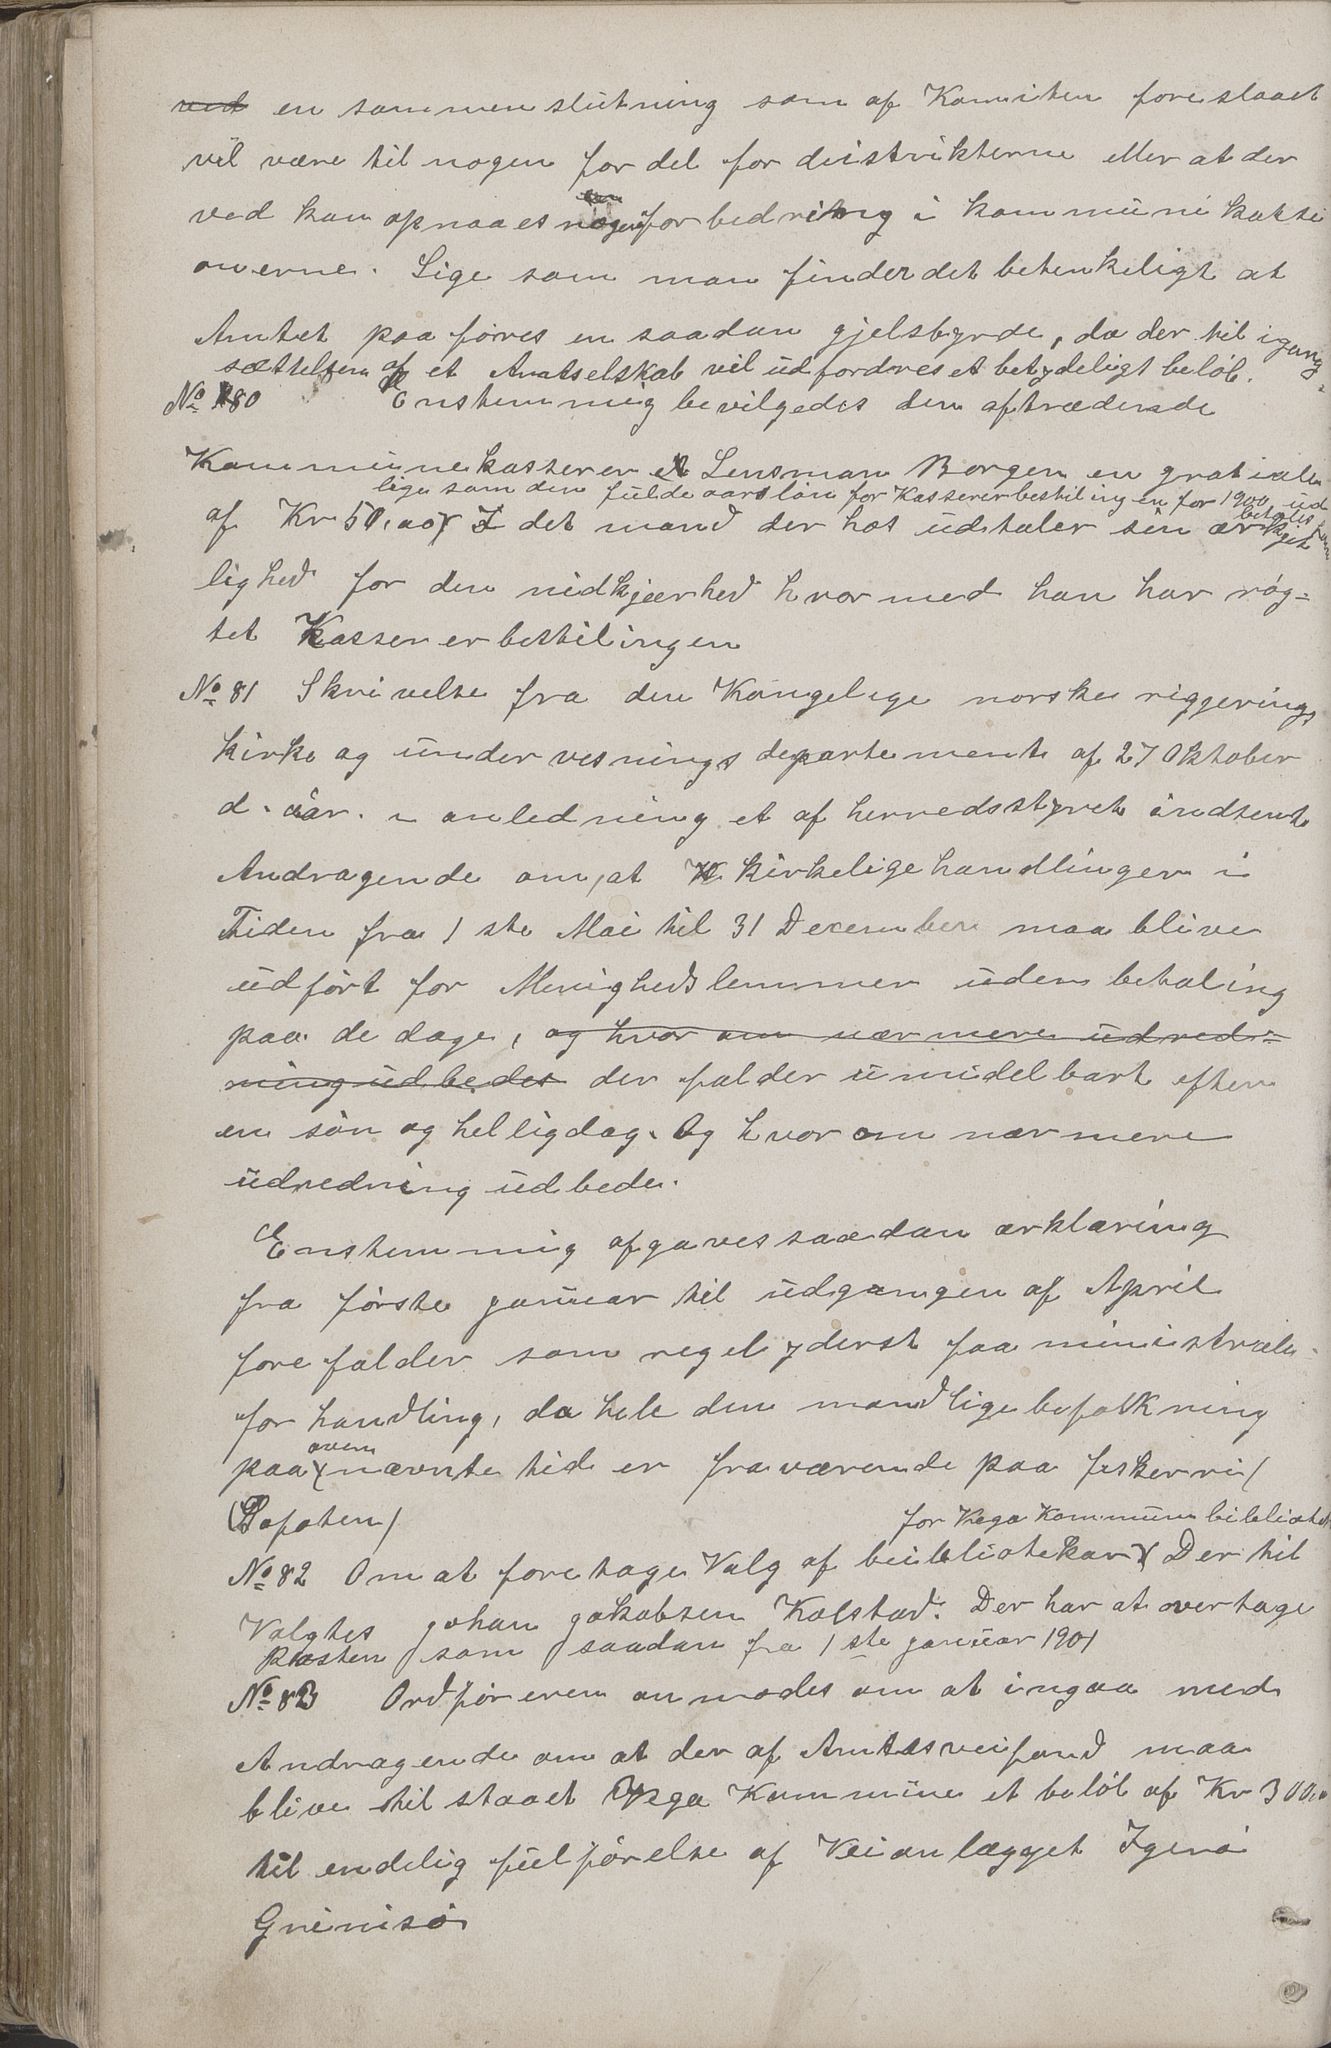 ved en sammenslutning som af Komiten foreslaaet
vil være til nogen fordel for distrikterne eller at der
ved kan opnaaes nogen forbedring i kommunikaksi
onerne. Lige som man finder det betenkeligt at
Amtet paaføres en saadan gjelsbyrde, da der til igang-
sættelsen af et Amtselskab vil udfordres et betydeligt beløb.
No 80 Enstemmig bevilgedes den aftrædende
Kommunekasserer Lensman Borgen en gratiale
lige som den fulde aarsløn for Kassererbestilingen for 1900 ud
betales ham
af Kr 50.00 I det mand der hos udtaler sin erkjent
lighed for den nidkjærhed hvormed han har røg-
tet Kassererbestilingen
No 81 Skrivelse fra den Kongelige norske riggerings
kirke og undervesnings departement af 27 Oktober
d. aar. i anledning et af herredsstyret indsent
Andragende om, at kirkelige handlinger i
Tiden fra 1ste Mai til 31 December maa blive
udført for Menighedslemmer uden betaling
paa de dage, og hvor om nærmere udred-
ning udbedes der falder umidelbart efter
en søn og helligdag. Og hvor om nærmere
udredning udbedes.
Enstemmig afgaves saadan erklæring
fra første januar til udgangen af April
forefalder som regel yderst faa ministriele
forhandling, da hele den mandlige befolkning
oven
paa nævnte tid er fraværende paa fiskerri
(Lofoten)
for Vega Kommunebibliotek
No 82 Om at foretage Valg af bibliotekar Der til
Valgtes Johan Jakobsen Kolstad. Der har at overtage
Posten som saadan fra 1ste januar 1901
No 83 Ordføreren anmodes om at ingaa med
Andragende om at der af Amtsveifond maa
blive tilstaaet Vega Kommune et beløb af Kr 300,00
til endelig fulførelse af Veianlægget Igerø
Grimsø